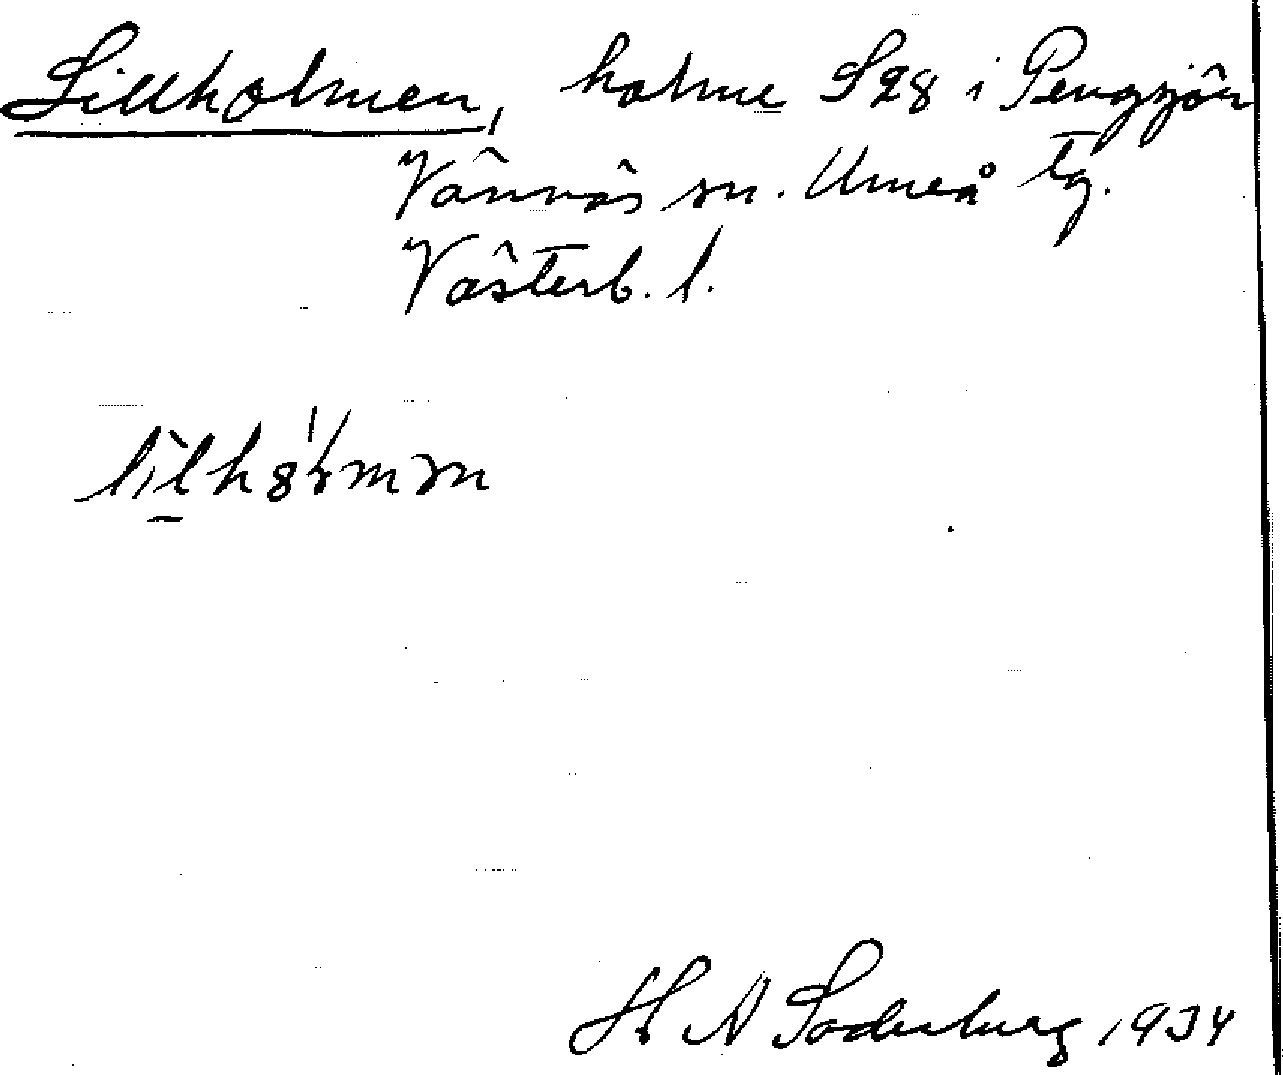 Lillholmen, holme S28 i Pengsjön
Vännäs sn. Umeå tg.
Västerb. l.
H A Söderberg 1934